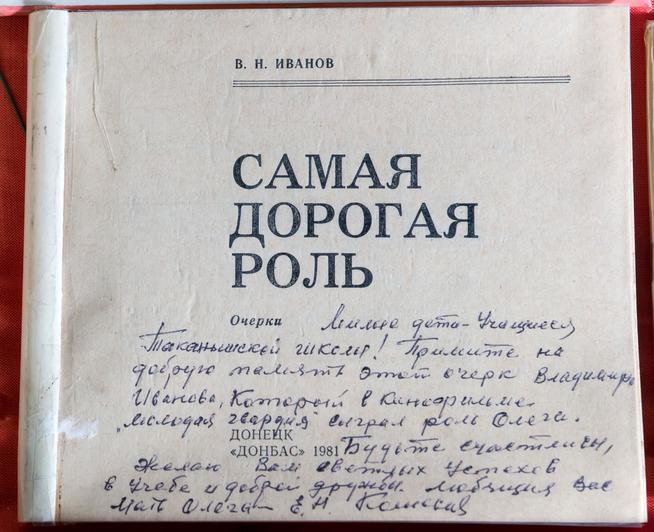 В. Н. ИВАНОВ
САМАЯ
ДОРОГАЯ
РОЛЬ
Очерки Милые дети - Учащиеся
Таканышской школы! Примите на
добрую память этот очерк Владимира
Иванова, Который в Кинофильме
"Молодая гвардия" сыграл роль Олега.
ДОНЕЦК
«ДОНБАС» 1981 Будьте счастливы,
Желаю Вам светлых Успехов
в Учебе и доброй дружбы. Любящая Вас
Мать Олега - Е. Н. Кошевая